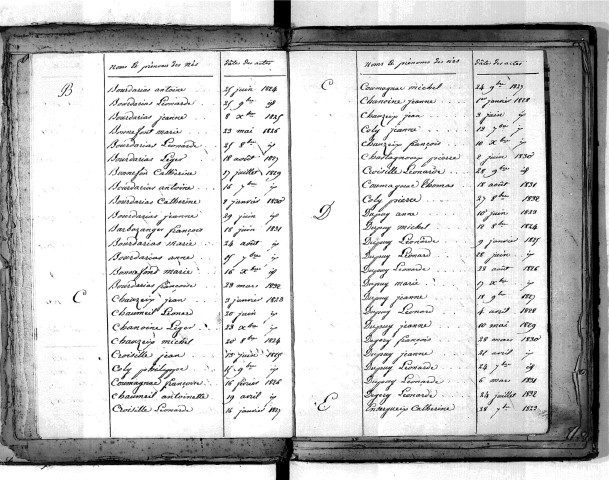 Noms et prénoms des nés Dates des actes
B
Bourdarias antoine 25 juin 1824
Bourdarias Léonarde 25 9bre id
Bourdarias jeanne 8 Xbre 1825
Bonnefont marie 23 mai 1826
Bourdarias Léonarde 21 8bre id
Bourdarias Léger 18 août 1827
Bonnefon Catherine 17 juillet 1829
Bourdarias antoine 16 7bre id
Bourdarias Catherine 8 janvier 1830
Bourdarias jeanne 29 juin id
Barbaranger françois 18 juin 1831
Bourdarias marie 24 août id
Bourdarias anne 15 7bre id
Bonnefond marie 16 Xbre id
Bourdarias françoise 23 mars 1832
C
Chauzeix jean 3 janvier 1823
Chaumeil Léonard 20 juin id
Chanoine Léger 23 Xbre id
Chauzeix michel 20 9bre 1824
Croisille jean 13 juin 1825
Coly philippe 15 9bre id
Coumagnac françoise 16 février 1826
Chaumeil antoinette 19 avril id
Croisille Léonarde 16 janvier 1827
Noms et prénoms des nés Dates des actes
C
Coumagnac michel 24 9bre 1827
Chanoine jeanne 1er janvier 1828
Chauzeix jean 3 juin id
Coly jeanne 13 7bre id
Chauzeix françois 10 Xbre id
Chastagnoux pierre 8 juin 1830
Croisille Léonarde 28 9bre id
Coumagnac Thomas 18 août 1831
Coly pierre 27 8bre 1832
D
Dupuy anne 10 juin 1823
Dupuy michel 12 8bre 1824
Dupuy Léonarde 9 janvier 1825
Dupuy Léonard 28 juin id
Dupuy Léonarde 28 août 1826
Dupuy marie 17 Xbre id
Dupuy jeanne 18 9bre 1827
Dupuy Léonard 4 avril 1828
Dupuy jeanne 10 mai 1829
françois 28 mars 1830
Dupuy jeanne 21 avril id
Dupuy Léonarde 24 7bre id
Dupuy Léonarde 6 mars 1831
Léonarde 24 juillet 1832
E
Catherine 28 7bre 1823